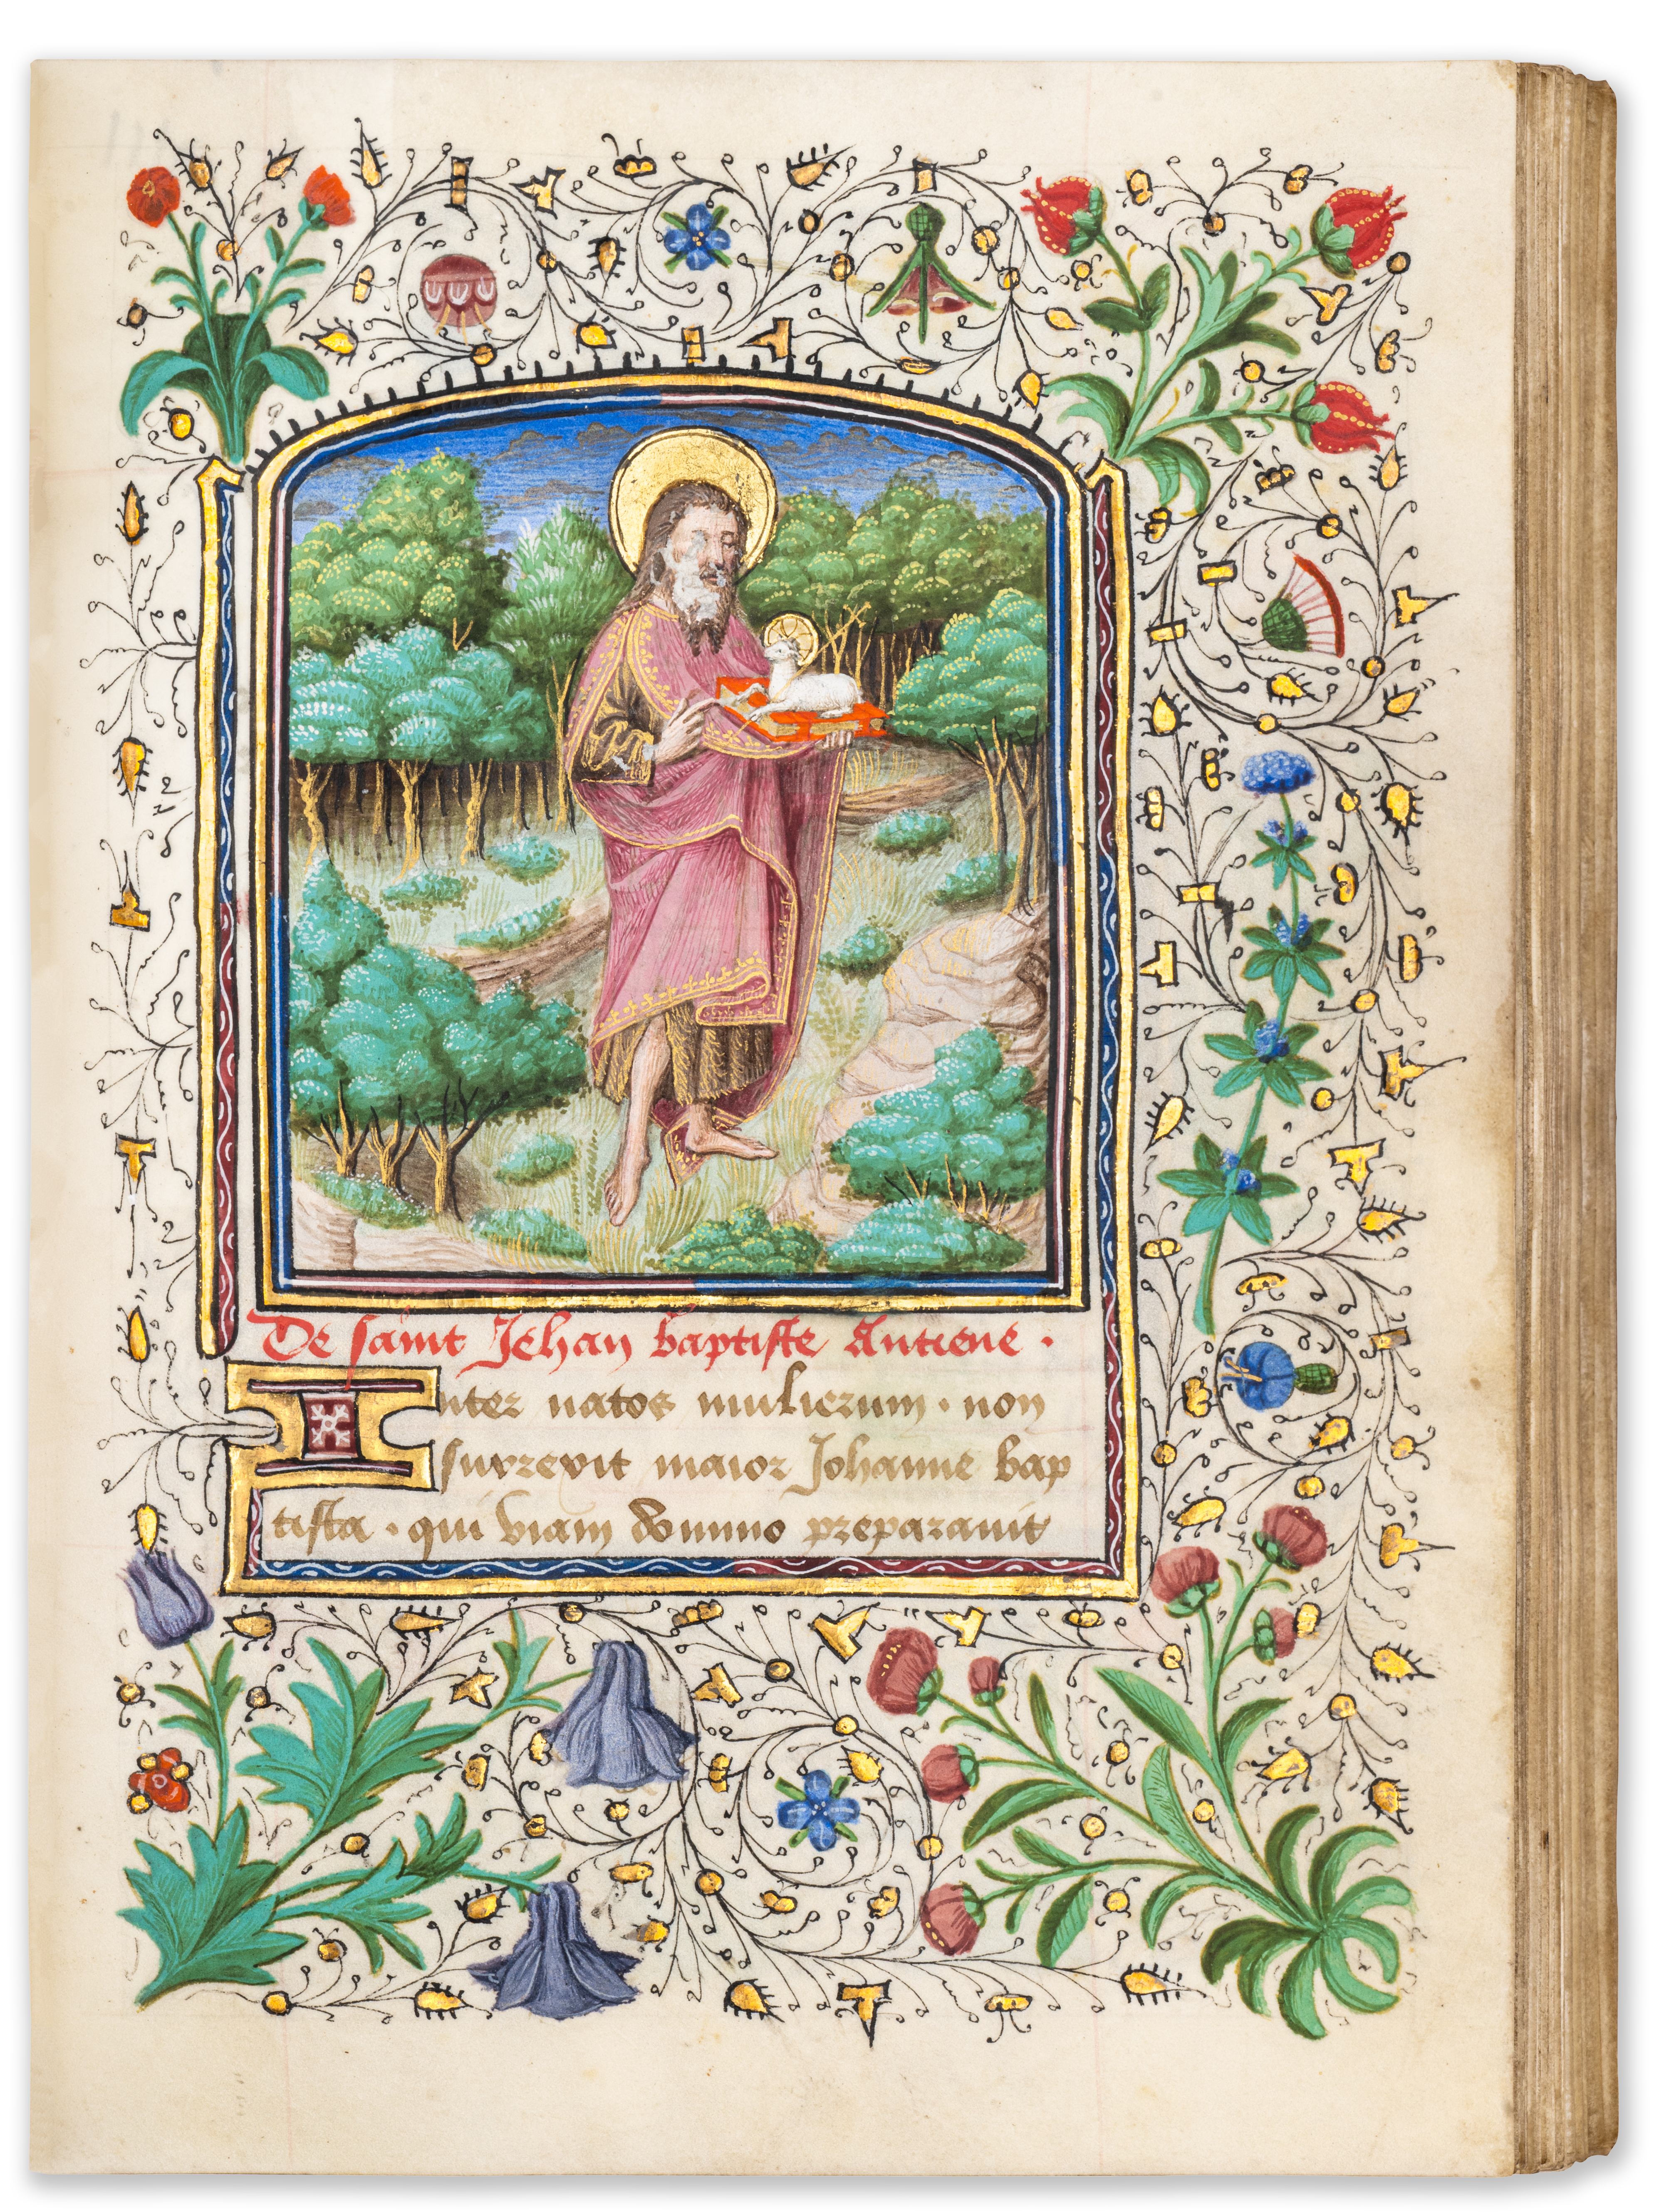 De saint Jehan baptiste Antiene ·
Inter natos mulierum · non
surrexit maior Johanne bap
tista · qui viam domino preparavit